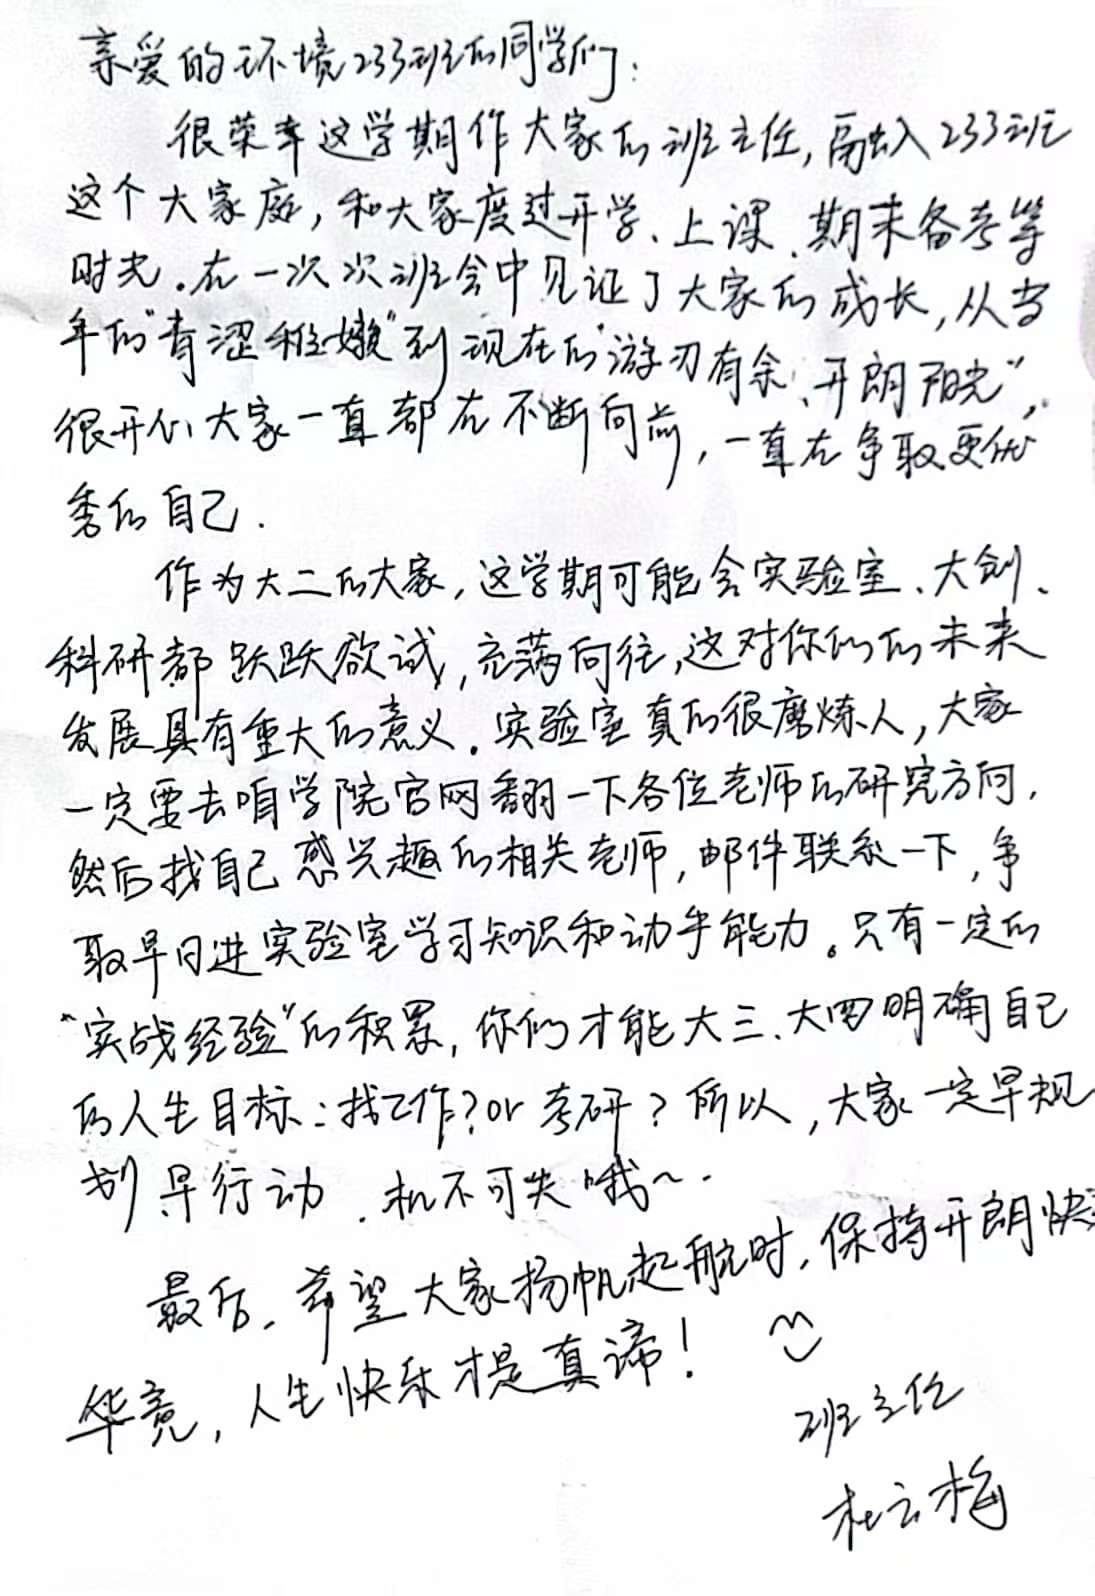 亲爱的环境233班的同学们:
很荣幸这学期作大家的班主任,融入233班
这个大家庭,和大家度过开学、上课、期末备考等
时光。在一次次班会中见证了大家的成长,从当
年的"青涩稚嫩"到现在的"游刃有余、开朗阳光",
很开心大家一直都在不断向前,一直在争取更优
秀的自己.
作为大二的大家,这学期可能会实验室、大创、
科研都跃跃欲试,充满向往,这对你们的未来
发展具有重大的意义。实验室真的很磨炼人,大家
一定要去咱学院官网翻一下各位老师的研究方向,
然后找自己感兴趣的相关老师,邮件联系一下,争
取早日进实验室学习知识和动手能力。只有一定的
"实战经验"的积累,你们才能大三、大四明确自己
的人生目标:找工作?or 考研?所以,大家一定早规
划早行动,机不可失哦~.
最后,希望大家扬帆起航时,保持开朗快
毕竟,人生快乐才是真谛!
班主任
杜云梅